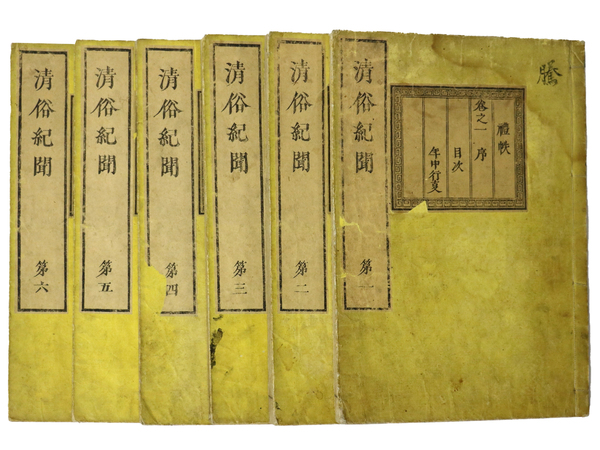 禮帙
卷之一 序
目次
年中行叓
清俗紀聞 第一
清俗紀聞 第二
清俗紀聞 第三
清俗紀聞 第四
清俗紀聞 第五
清俗紀聞 第六